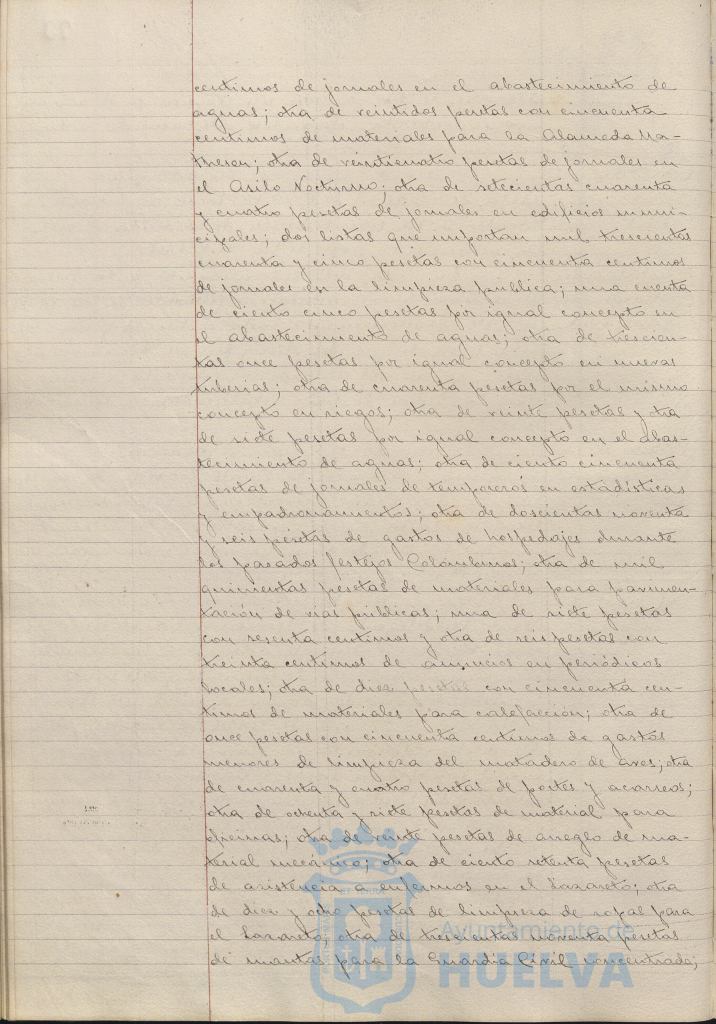 centimos de jornales en el abastecimiento de
aguas; otra de veintidos pesetas con cincuenta
centimos de materiales para la Alameda Ma-
theson; otra de veinticuatro pesetas de jornales en
el Asilo Nocturno; otra de setecientas cuarenta
y cuatro pesetas de jornales en edificios muni-
cipales; dos listas que importan mil trescientas
cuarenta y cinco pesetas con cincuenta centimos
de jornales en la limpieza publica; una cuenta
de ciento cinco pesetas por igual concepto en
el abastecimiento de aguas; otra de trescien-
tas once pesetas por igual concepto en nuevas
tuberias; otra de cuarenta pesetas por el mismo
concepto en riegos; otra de veinte pesetas y otra
de siete pesetas por igual concepto en el abas-
tecimiento de aguas; otra de ciento cincuenta
pesetas de jornales de temporeros en estadísticas
y empadronamientos; otra de doscientas noventa
y seis pesetas de gastos de hospedajes durante
los pasados festejos Colombinos; otra de mil
quinientas pesetas de materiales para pavimen-
tación de vias públicas; una de siete pesetas
con sesenta centimos y otra de seis pesetas con
treinta centimos de anuncios en periódicos
locales; otra de diez pesetas con cincuenta cen-
timos de materiales para calefacción; otra de
once pesetas con cincuenta centimos de gastos
menores de limpieza del matadero de aves; otra
de cuarenta y cuatro pesetas de portes y acarreos;
otra de ochenta y siete pesetas de material para
oficinas; otra de veinte pesetas de arreglo de ma-
terial mecánico; otra de ciento setenta pesetas
de asistencia a enfermos en el Lazareto; otra
de diez y ocho pesetas de limpieza de ropas para
el Lazareto; otra de trescientas noventa pesetas
de mantas para la Guardia Civil concentrada;
Ayuntamiento de
HUELVA